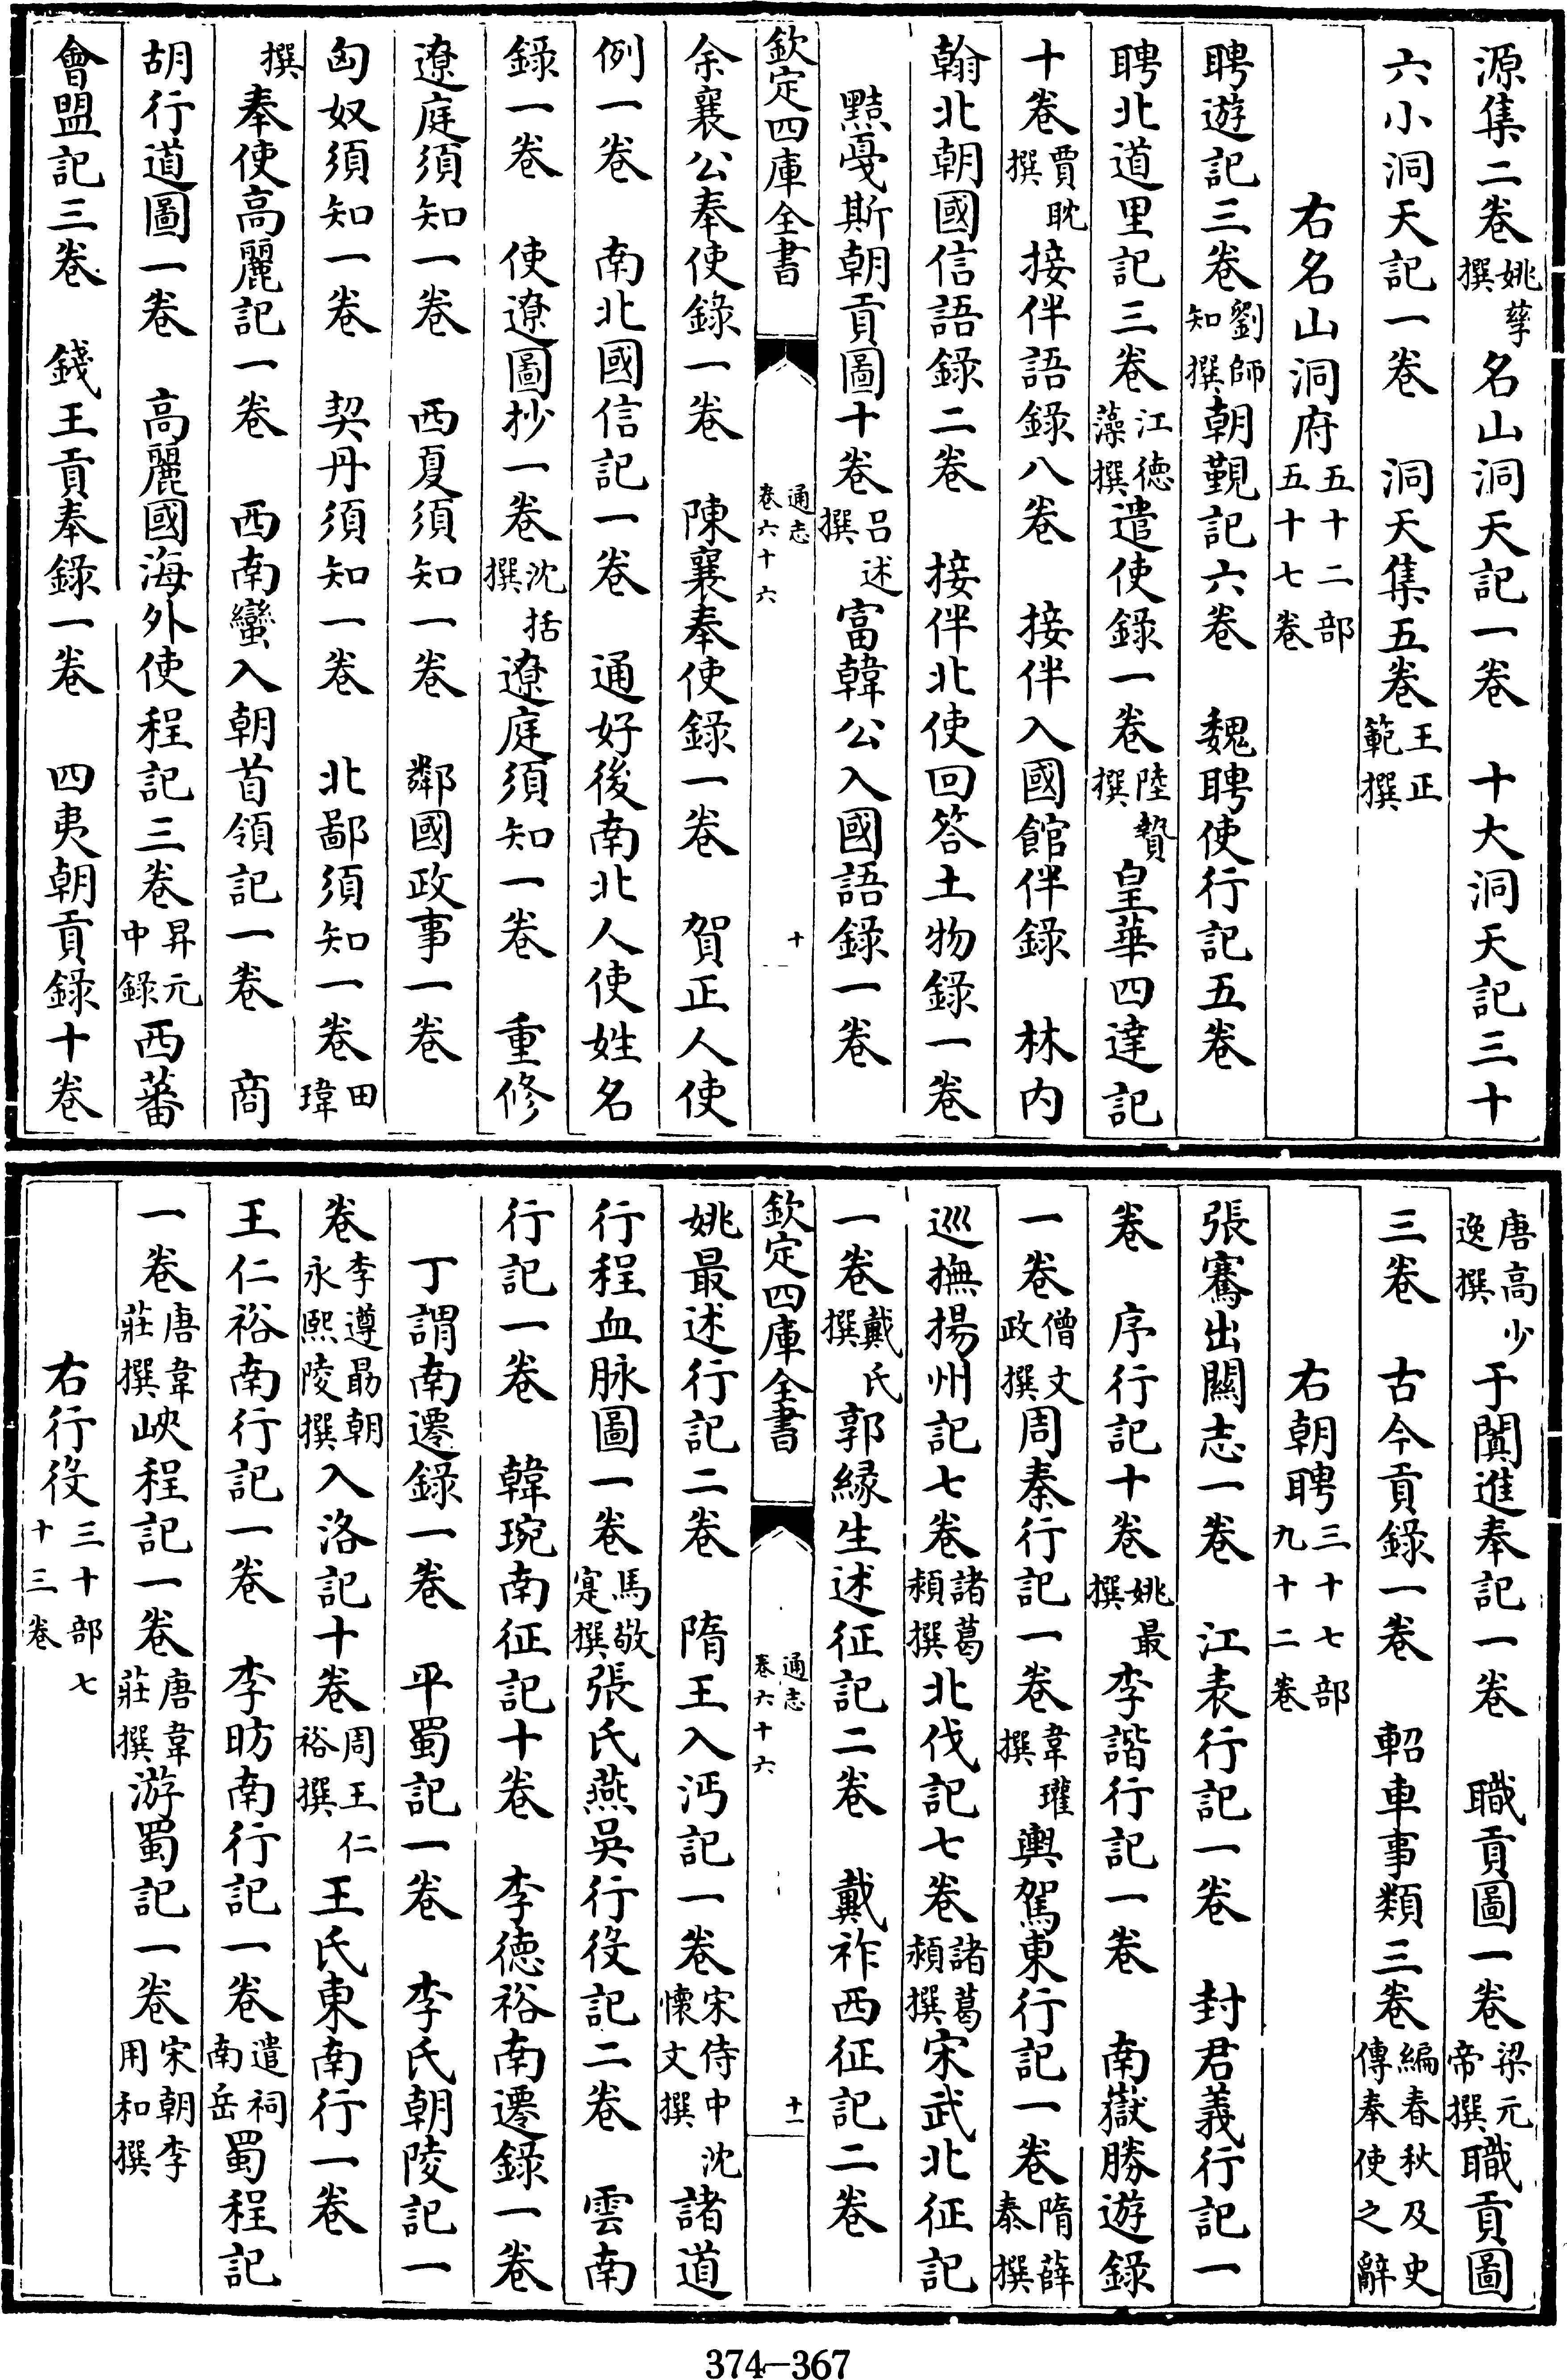 源集二卷姚孳撰名山洞天記一卷　十大洞天記三十
六小洞天記一卷　洞天集五卷王正範撰
右名山洞府五十二部五十七卷
聘遊記三卷劉師知撰朝覲記六卷　魏聘使行記五卷
聘北道里記三卷江德藻撰遣使錄一卷陸贄撰皇華四達記
十卷賈耽撰接伴語錄八卷　接伴入國館伴錄　林内
翰北朝國信語錄二卷　接伴北使回答土物錄一卷
黠戛斯朝貢圖十卷呂述撰富韓公入國語錄一卷
欽定四庫全書　通志卷六十六　十
余襄公奉使錄一卷　陳襄奉使錄一卷　賀正人使
例一卷　南北國信記一卷　通好後南北人使姓名
錄一卷　使遼圖抄一卷沈括撰遼庭須知一卷　重修
遼庭須知一卷　西夏須知一卷　鄰國政事一卷
匈奴須知一卷　契丹須知一卷　北鄙須知一卷田瑋
撰奉使高麗記一卷　西南蠻入朝首領記一卷　商
胡行道圖一卷　高麗國海外使程記三卷昇元中錄西蕃
會盟記三卷　錢王貢奉錄一卷　四夷朝貢錄十卷
唐高少逸撰于闐進奉記一卷　職貢圖一卷梁元帝撰職貢圖
三卷　古今貢錄一卷　軺車事類三卷編春秋及史傳奉使之辭
右朝聘三十七部九十二卷
張騫出關志一卷　江表行記一卷　封君義行記一
卷　序行記十卷姚最撰李諧行記一卷　南嶽勝遊錄
一卷僧文政撰周秦行記一卷韋瓘撰輿駕東行記一卷隋薛泰撰
巡撫揚州記七卷諸葛潁撰北伐記七卷諸葛潁撰宋武北征記
一卷戴氏撰郭緣生述征記二卷　戴祚西征記二卷
欽定四庫全書　通志卷六十六　十一
姚最述行記二卷　隋王入沔記一卷宋侍中沈懷文撰諸道
行程血脉圖一卷馬敬寔撰張氏燕吳行役記二卷　雲南
行記一卷　韓琬南征記十卷　李德裕南遷錄一卷
丁謂南遷錄一卷　平蜀記一卷　李氏朝陵記一
卷李遵勗朝永熙陵撰入洛記十卷周王仁裕撰王氏東南行一卷
王仁裕南行記一卷　李昉南行記一卷遣祠南岳蜀程記
一卷唐韋莊撰峽程記一卷唐韋莊撰游蜀記一卷宋朝李用和撰
右行役三十部七十三卷
374—367